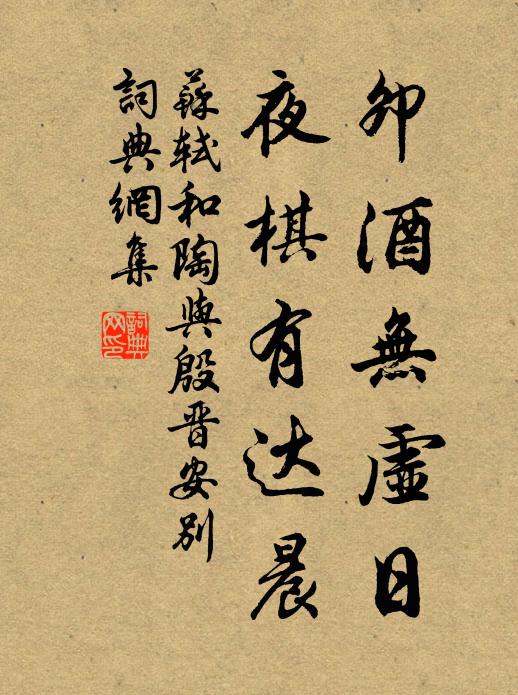 卯酒無虛日
夜棋有达晨
蘇軾和陶與殷晋安別
詞典網集
詞典网印